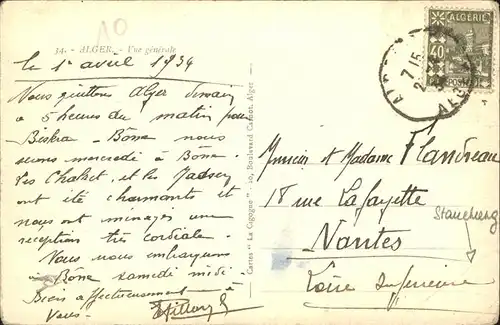 34. - ALGER. - Vue générale
le 1er avril 1934
Nous quittons Alger demain
à 5 heures du matin pour
Biskra - Bône nous
serons mercredi à Bône.
Les Chalset, et les
ont été charmants et
nous ont ménagés une
réception très cordiale.
Nous nous embarquons
à Bône samedi midi.
Bien affectueusement à
Vous.
Cartes "La Cigogne" - 19, Boulevard Carnot, Alger
ALGÉRIE
40
POSTES
7/15
Monsieur et Madame Flandreau
18 rue Lafayette
Nantes
Loire Inférieure